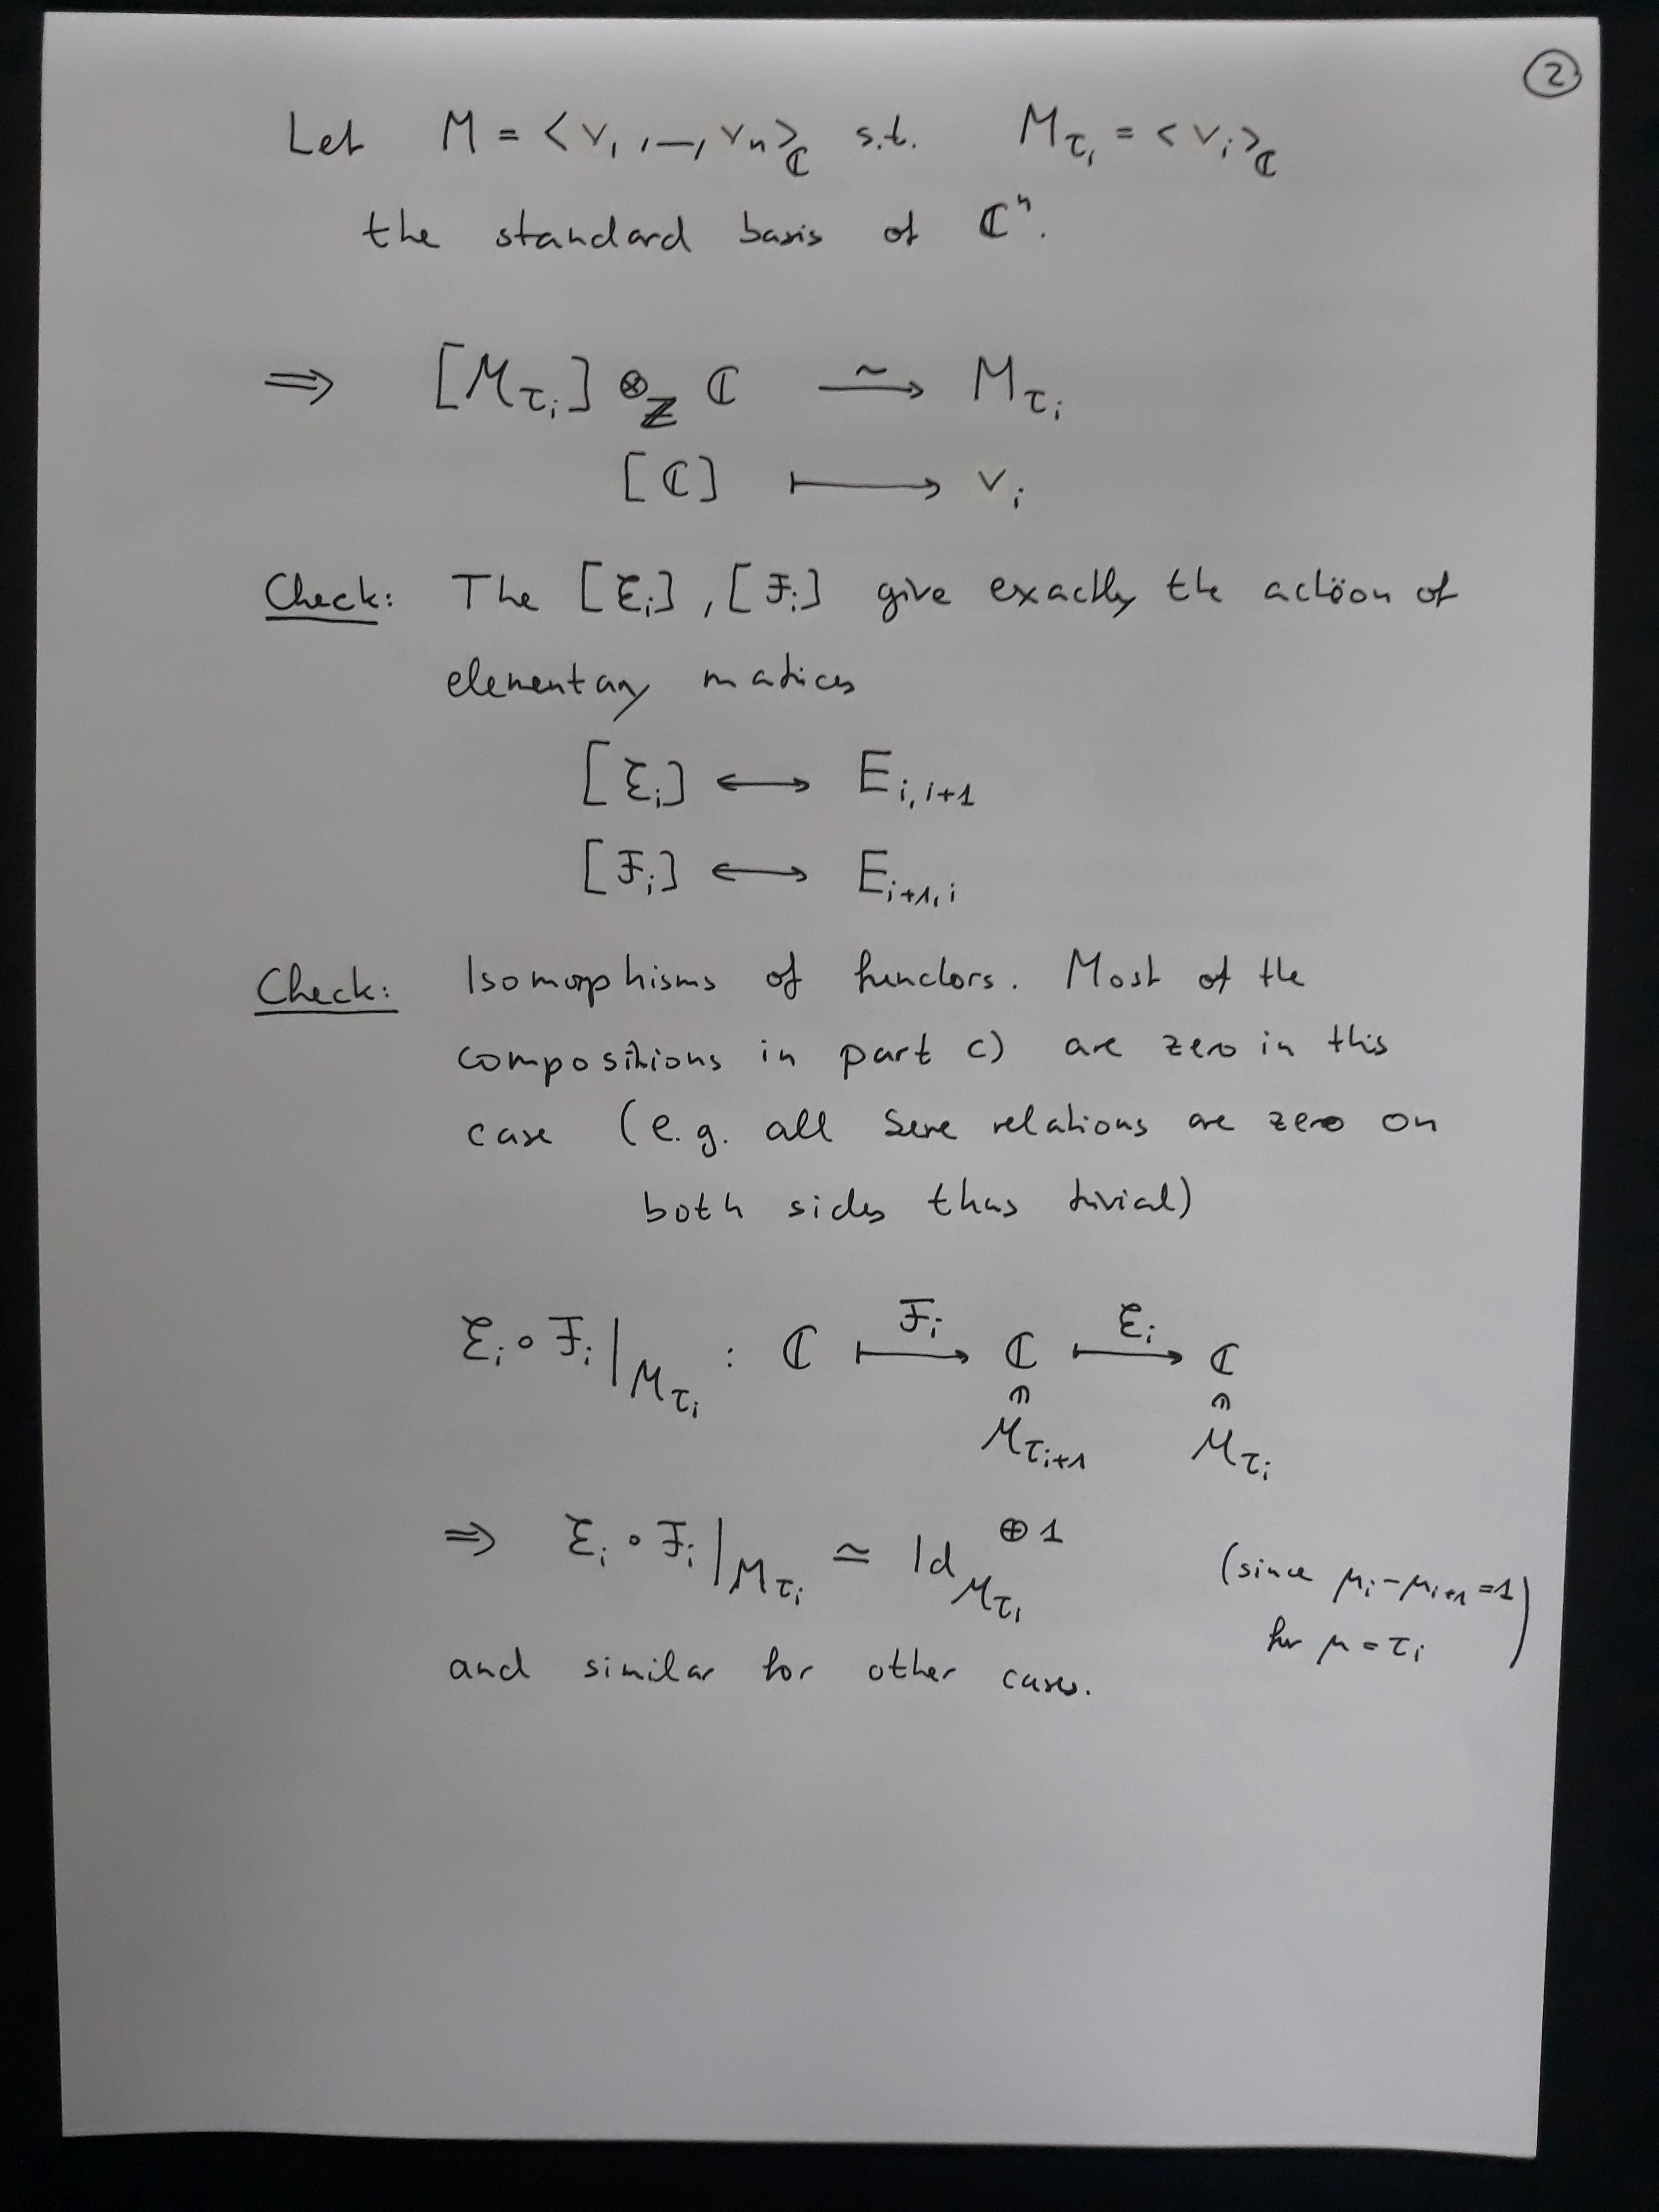 ②
Let M = <v₁, —, vₙ>_ℂ s.t. M_{τᵢ} = <vᵢ>_ℂ
the standard basis of ℂⁿ.
⇒ [ℳ_{τᵢ}] ⊗_ℤ ℂ ⥲ M_{τᵢ}
[ℂ] ⟼ vᵢ
Check: The [ℰᵢ], [ℱᵢ] give exactly the action of
elementary matrices
[ℰᵢ] ⟷ E_{i,i+1}
[ℱᵢ] ⟷ E_{i+1,i}
Check: Isomorphisms of functors. Most of the
compositions in part c) are zero in this
case (e.g. all Serre relations are zero on
both sides thus trivial)
ℰᵢ ∘ ℱᵢ |_{ℳ_{τᵢ}} : ℂ ⟼^{ℱᵢ} ℂ ⟼^{ℰᵢ} ℂ
∈ ∈
ℳ_{τᵢ₊₁} ℳ_{τᵢ}
⇒ ℰᵢ ∘ ℱᵢ |_{ℳ_{τᵢ}} ≃ Id_{ℳ_{τᵢ}}^{⊕1} (since μᵢ - μᵢ₊₁ = 1
for μ = τᵢ)
and similar for other cases.